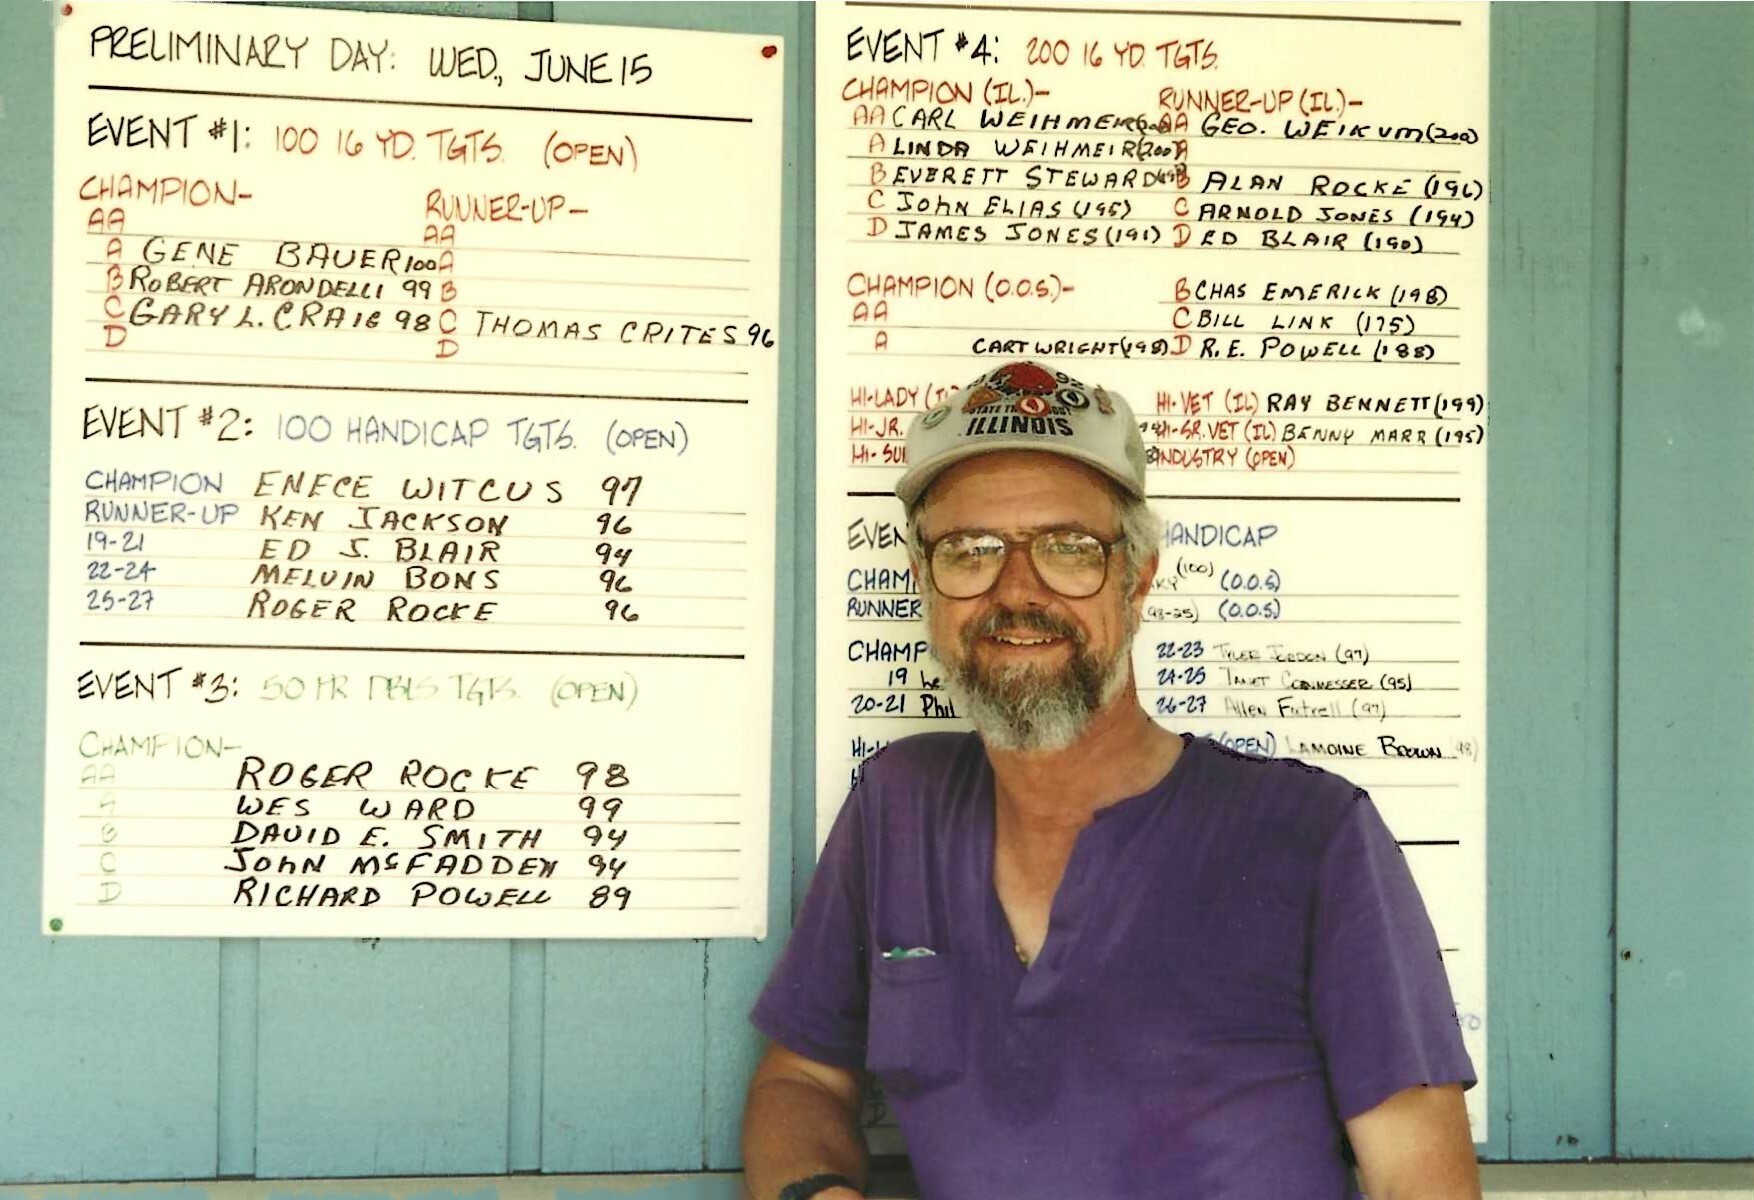 PRELIMINARY DAY: WED., JUNE 15
EVENT #1: 100 16 YD. TGTS. (OPEN)
CHAMPION-
RUNNER-UP-
AA
AA
A GENE BAUER 100 A
B ROBERT ARONDELLI 99 B
C GARY L. CRAIG 98 C THOMAS CRITES 96
D
D
EVENT #2: 100 HANDICAP TGTS. (OPEN)
CHAMPION ENECE WITCUS 97
RUNNER-UP KEN JACKSON 96
19-21 ED J. BLAIR 94
22-24 MELVIN BONS 96
25-27 ROGER ROCKE 96
EVENT #3: 50 PR DBLS TGTS. (OPEN)
CHAMPION-
AA ROGER ROCKE 98
A WES WARD 99
B DAVID E. SMITH 94
C JOHN McFADDEN 94
D RICHARD POWELL 89
EVENT #4: 200 16 YD. TGTS.
CHAMPION (IL.)- RUNNER-UP (IL.)-
AA CARL WEIHMEIR AA GEO. WEIKUM (200)
A LINDA WEIHMEIR (200) A
B EVERETT STEWARD B ALAN ROCKE (196)
C JOHN ELIAS (195) C ARNOLD JONES (194)
D JAMES JONES (191) D ED BLAIR (190)
CHAMPION (O.O.S.)- B CHAS EMERICK (198)
AA C BILL LINK (175)
A CARTWRIGHT (198) D R.E. POWELL (188)
HI-LADY HI-VET (IL) RAY BENNETT (199)
HI-JR. HI-SR. VET (IL) BENNY MARR (195)
HI- INDUSTRY (OPEN)
STATE
ILLINOIS
HANDICAP
(100) (O.O.S)
RUNNER (98-25) (O.O.S)
22-23 TYLER JORDON (97)
19 24-25 (95)
20-21 Phil 26-27 Allen Futrell (97)
(OPEN) LAMOINE BROWN (98)
D